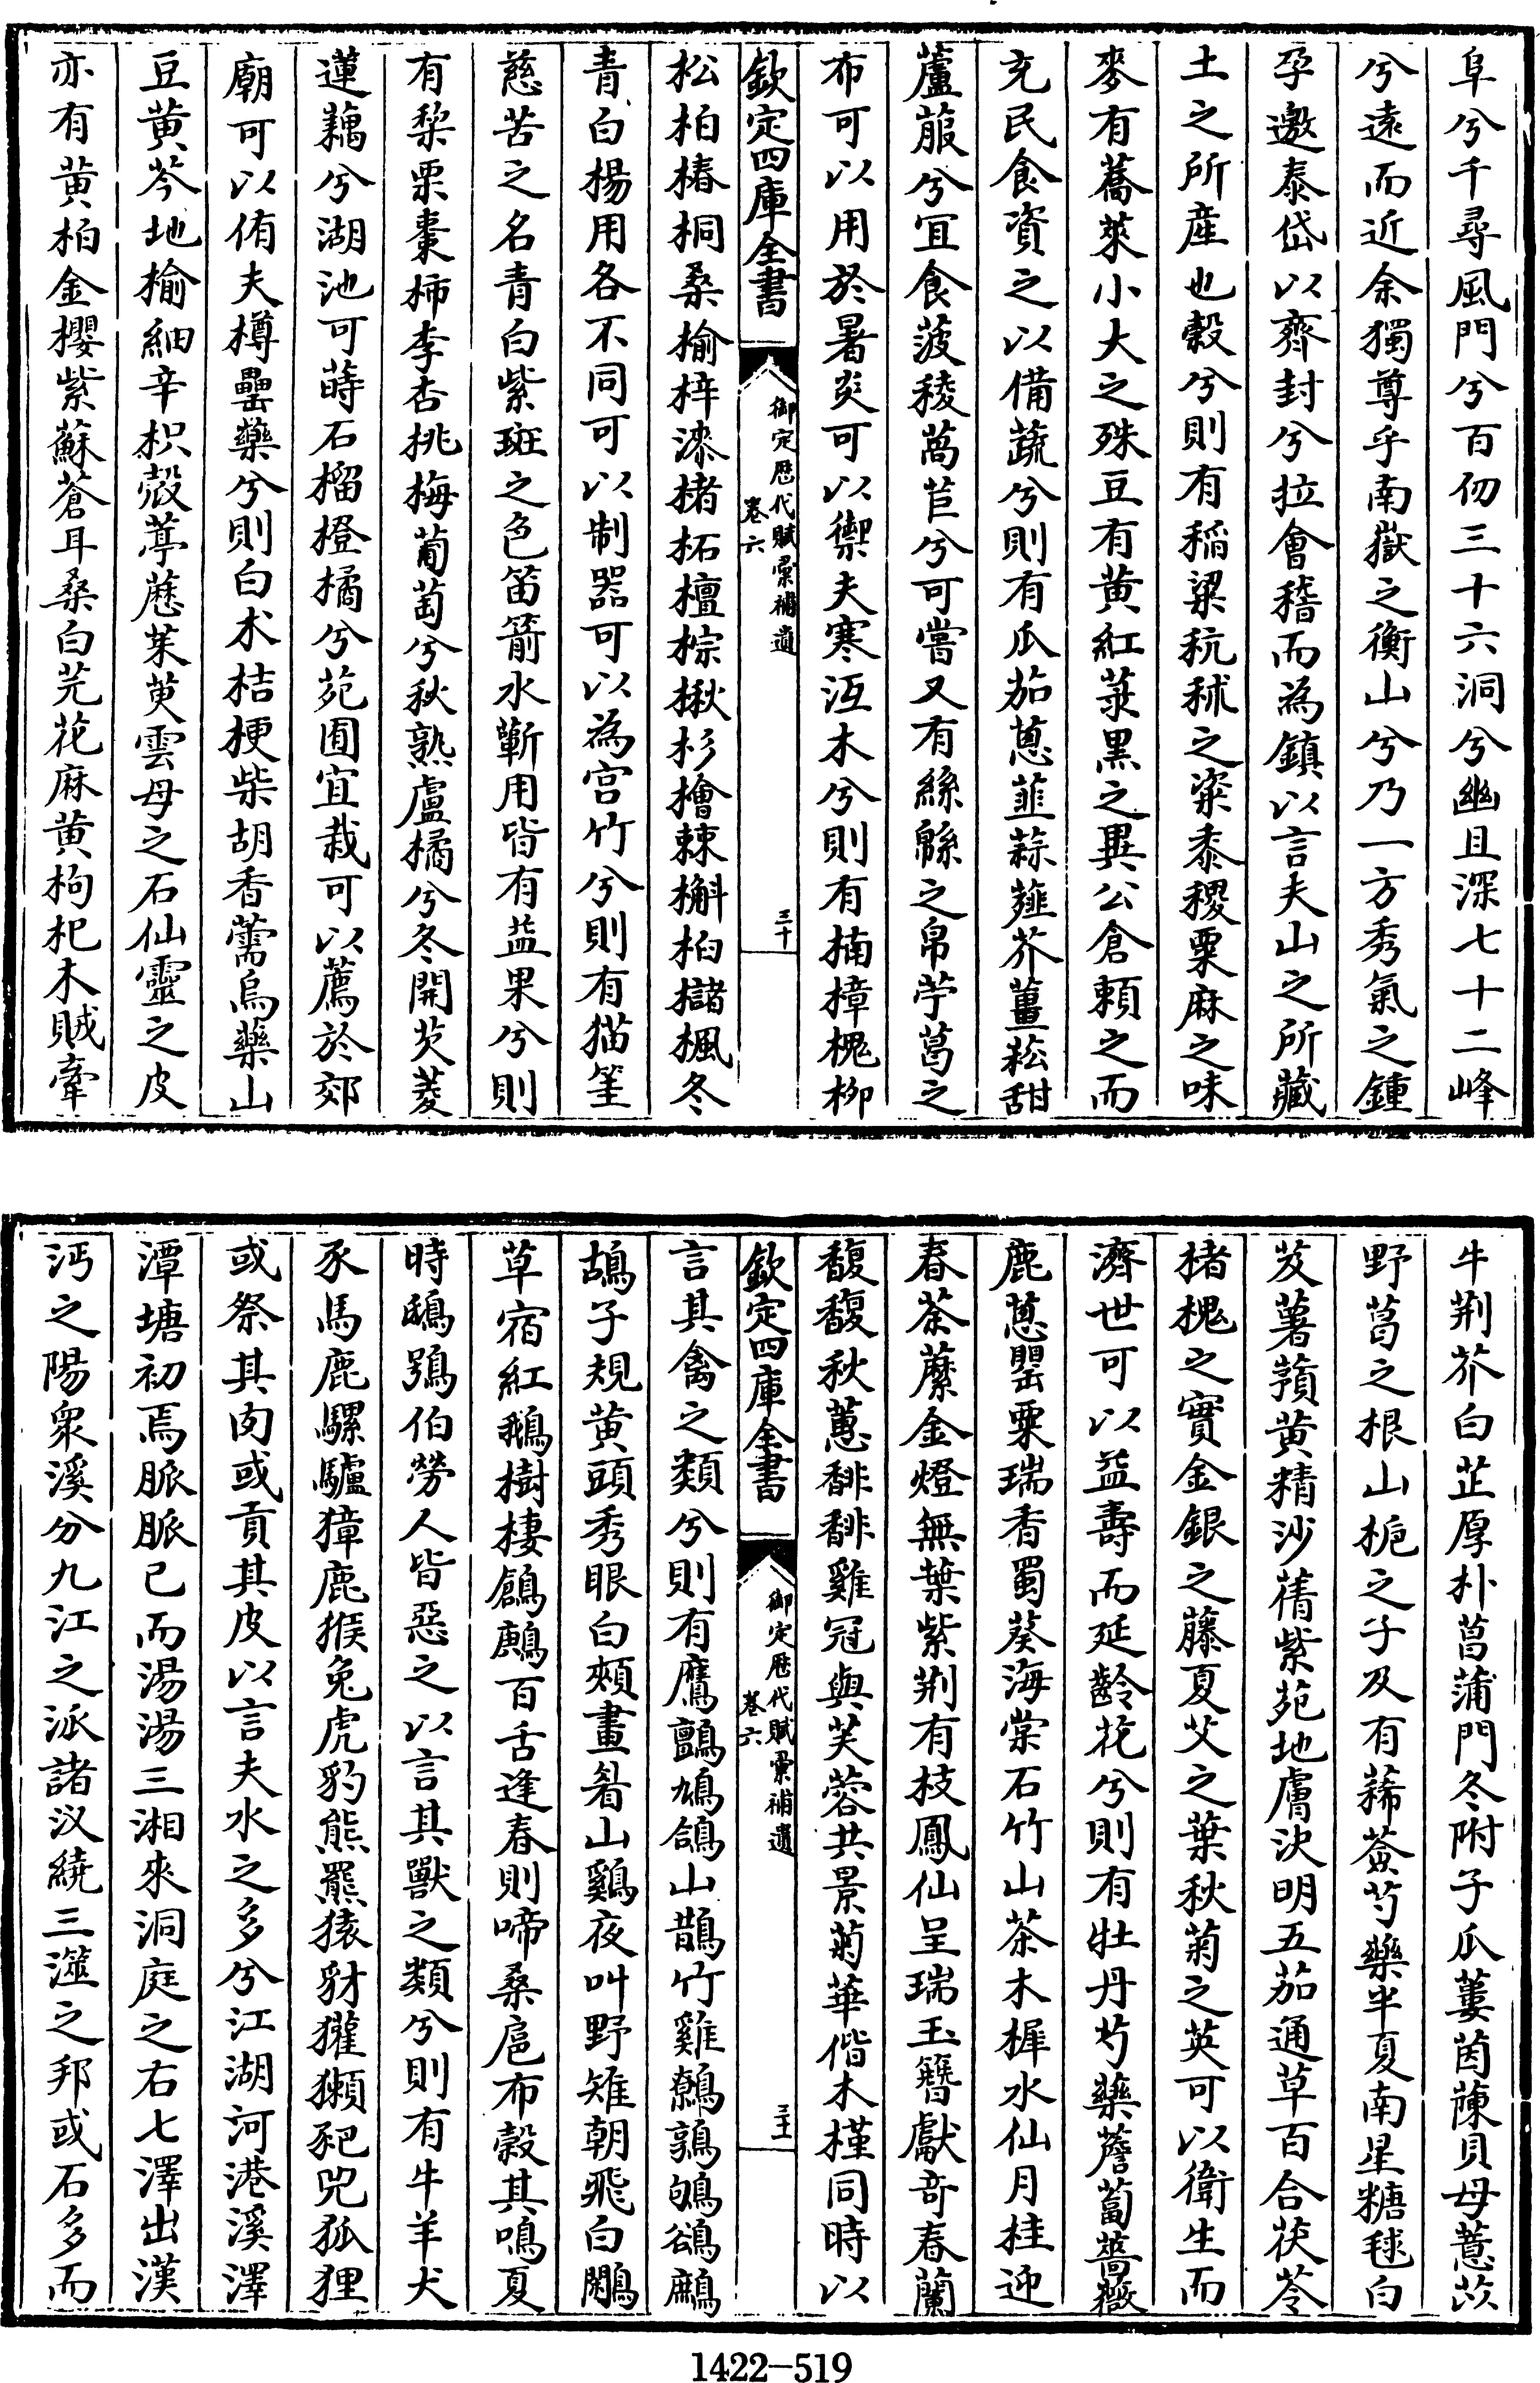 阜兮千尋風門兮百仞三十六洞兮幽且深七十二峰
兮遠而近余獨尊乎南嶽之衡山兮乃一方秀氣之鍾
孕邀泰岱以齊封兮拉會稽而為鎮以言夫山之所藏
土之所産也穀兮則有稻粱秔秫之粢黍稷粟麻之味
麥有蕎萊小大之殊豆有黄紅菉黑之異公倉頼之而
充民食資之以備蔬兮則有瓜茄蔥韮蒜薤芥薑菘甜
蘆菔兮宜食菠稜萵苣兮可嘗又有絲緜之帛苧葛之
布可以用於暑炎可以禦夫寒沍木兮則有楠樟槐栁
欽定四庫全書
御定歴代賦彙補遺
卷六
三十
松柏椿桐桑榆梓漆楮柘檀棕楸杉檜棘槲桕櫧楓冬
青白楊用各不同可以制器可以為宫竹兮則有猫筀
慈苦之名青白紫斑之色笛箭水簕用皆有益果兮則
有棃栗棗柿李杏桃梅葡萄兮秋熟盧橘兮冬開芡菱
蓮藕兮湖池可蒔石榴橙橘兮苑囿宜栽可以薦於郊
廟可以侑夫樽罍藥兮則白朮桔梗柴胡香薷烏藥山
豆黄芩地榆細辛枳殻葶藶茱萸雲母之石仙靈之皮
亦有黄柏金櫻紫蘇蒼耳桑白芫花麻黄枸杞木賊牽
牛荆芥白芷厚朴菖蒲門冬附子瓜蔞茵蔯貝母薏苡
野葛之根山梔之子及有蓨薟芍藥半夏南星糖毬白
芨薯蕷黄精沙蒨紫苑地膚决明五茄通草百合茯苓
楮槐之實金銀之藤夏艾之葉秋菊之英可以衛生而
濟世可以益壽而延齡花兮則有牡丹芍藥薝蔔薔薇
鹿蔥罌粟瑞香蜀葵海棠石竹山茶木樨水仙月桂迎
春荼蘼金燈無葉紫荆有枝鳳仙呈瑞玉簪獻奇春蘭
馥馥秋蕙馡馡雞冠與芙蓉共景菊華偕木槿同時以
欽定四庫全書
御定歴代賦彙補遺
卷六
三十一
言其禽之類兮則有鷹鸇鳩鴿山鵲竹雞鷯鶉鴝鵒鷓
鴣子規黄頭秀眼白頰畫眉山鷄夜叫野雉朝飛白鷴
草宿紅鵝樹棲鶬鶊百舌逢春則啼桑扈布穀其鳴夏
時鴟鴞伯勞人皆惡之以言其獸之類兮則有牛羊犬
豕馬鹿騾驢獐鹿猴兔虎豹熊羆猿豺獾獺豝兕狐狸
或祭其肉或貢其皮以言夫水之多兮江湖河港溪澤
潭塘初焉脈脈已而湯湯三湘來洞庭之右七澤出漢
沔之陽衆溪分九江之派諸汊繞三澨之邦或石多而
1422-519